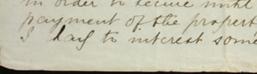 in order to secure until
payment of the propert
I beg to interest some